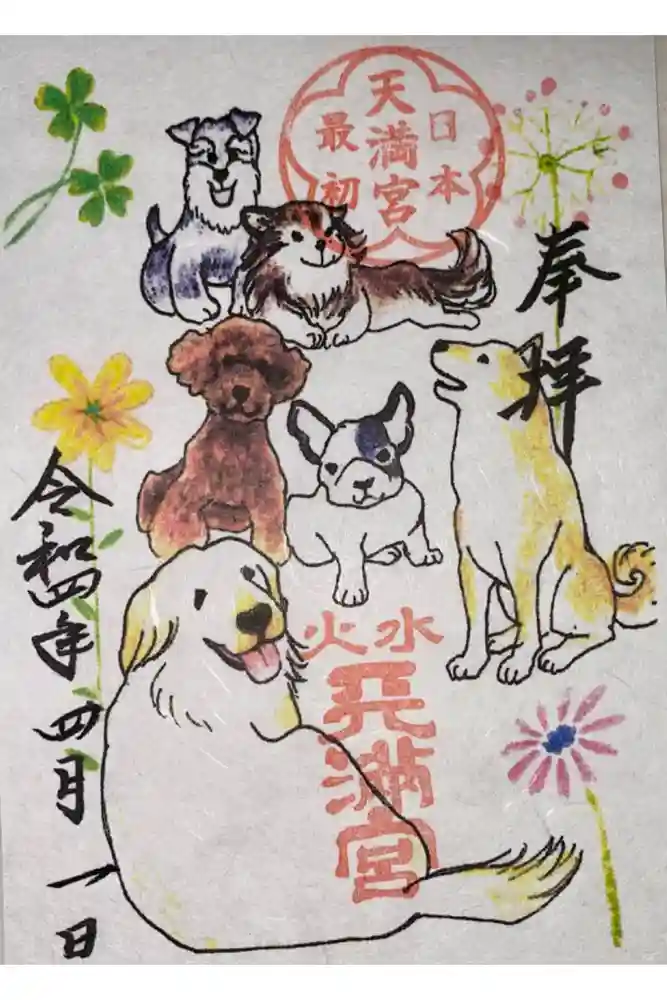 奉拝
日本
最初
天満宮
水火
天満宮
令和四年 四月 一日